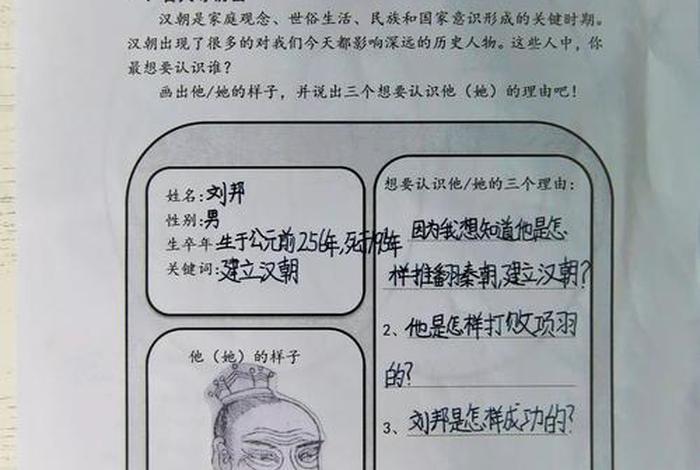 汉朝是家庭观念、世俗生活、民族和国家意识形成的关键时期。
汉朝出现了很多的对我们今天都影响深远的历史人物。这些人中，你
最想要认识谁？
画出他/她的样子，并说出三个想要认识他（她）的理由吧！
姓名：刘邦
性别：男
生卒年：生于公元前256年，死于195年
关键词：建立汉朝
他（她）的样子
想要认识他/她的三个理由：
因为我想知道他是怎
样推翻秦朝，建立汉朝？
2、他是怎样打败项羽
的？
3、刘邦是怎样成功的？